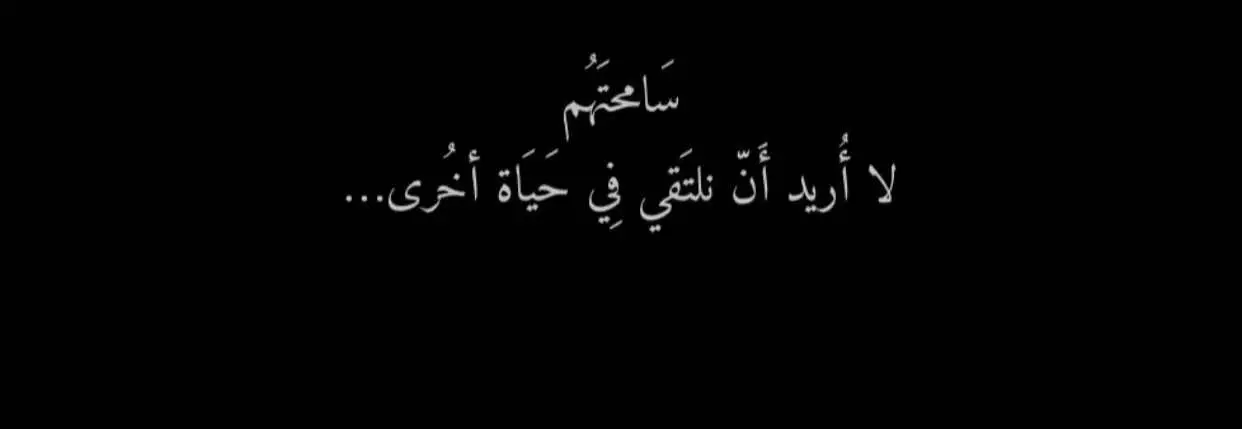 سَامحتَهُم
لا أُريد أَنّ نلتَقي فِي حَيَاة أخُرى...